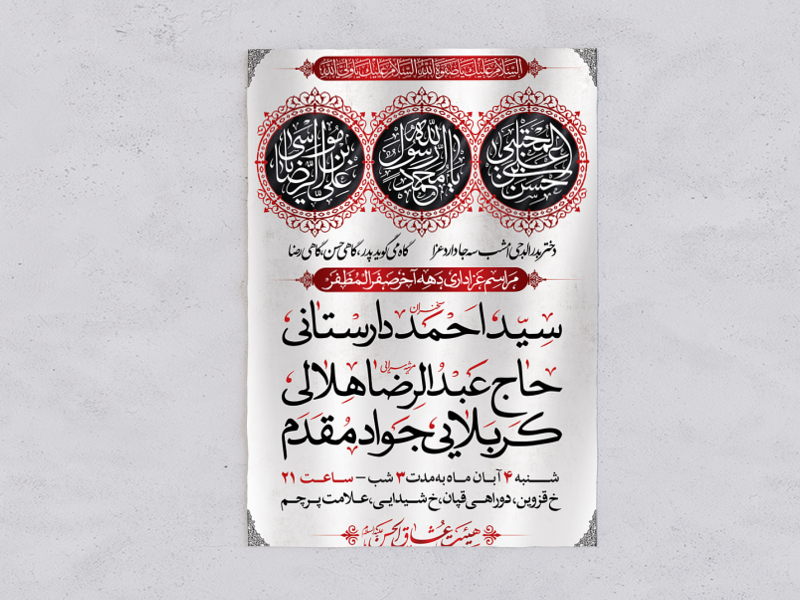 السلام علیک یا صفوة الله السلام علیک یا ولی الله
علی بن موسی الرضا
یا محمد رسول الله
حسن بن علی المجتبی
دختر بدرالدجی امشب سه جا دارد عزا گاه می گوید پدر، گاهی حسن، گاهی رضا
مراسم عزاداری دهه آخر صفر المظفر
سخنران
سیّد احمد دارستانی
حاج عبدالرضا هلالی
کربلایی جواد مقدم
شنبه ۴ آبان ماه به مدت ۳ شب - ساعت ۲۱
خ قزوین، دوراهی قپان، خ شیدایی، علامت پرچم
هیئت عشاق الحسن علیه السلام